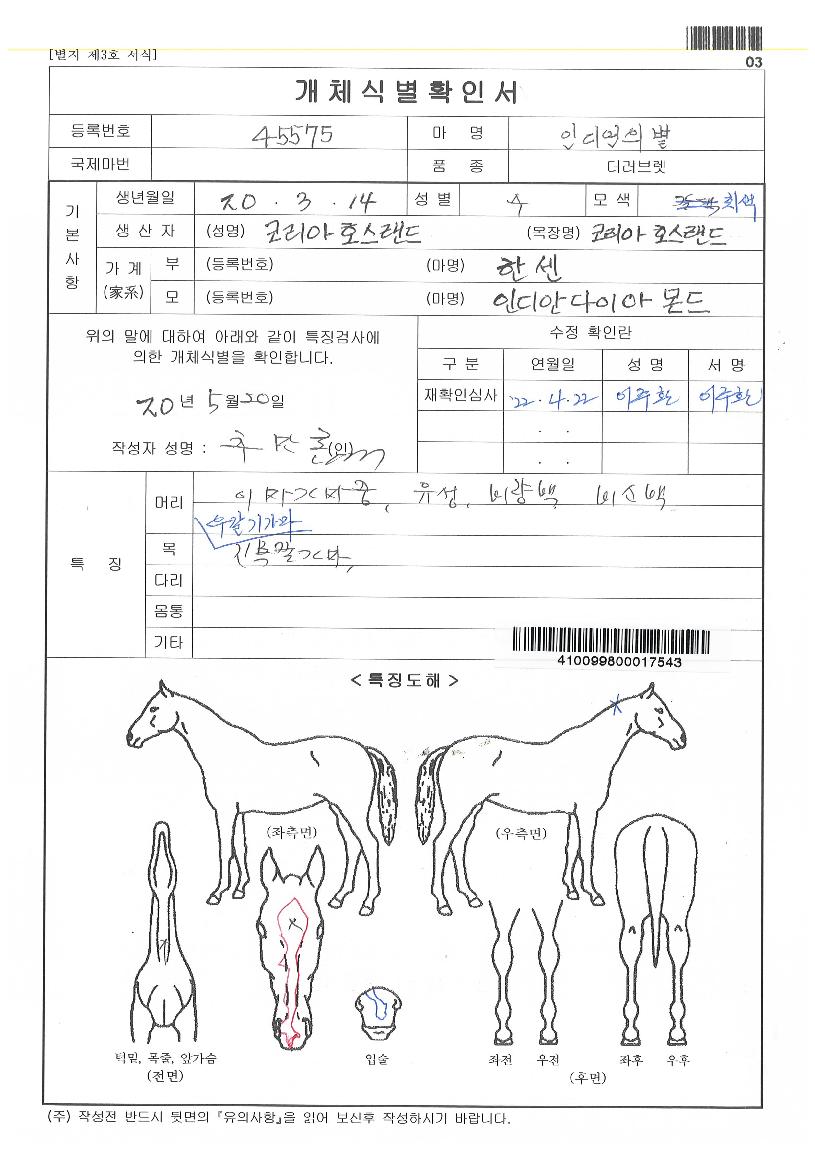 [별지 제3호 서식]
03
개체식별확인서
등록번호 45575 마 명 인디언의별
국제마번 품 종 더러브렛
기본사항
생년월일 20 . 3 . 14 성 별 수 모 색 회색
생 산 자 (성명) 코리아호스랜드 (목장명) 코리아호스랜드
가 계 (家系) 부 (등록번호) (마명) 한센
모 (등록번호) (마명) 인디안다이아몬드
위의 말에 대하여 아래와 같이 특징검사에
의한 개체식별을 확인합니다.
20년 5월20일
작성자 성명 : (인)
수정 확인란
구 분 연월일 성 명 서 명
재확인심사 '22.4.22 이주환 이주환
. .
. .
특 징
머리 이마가마중, 유성, 비량백 비신백
목
다리
몸통
기타
410099800017543
< 특징도해 >
(좌측면)
(우측면)
턱밑, 목줄, 앞가슴
(전면)
입술
좌전 우전 좌후 우후
(후면)
(주) 작성전 반드시 뒷면의 『유의사항』을 읽어 보신후 작성하시기 바랍니다.